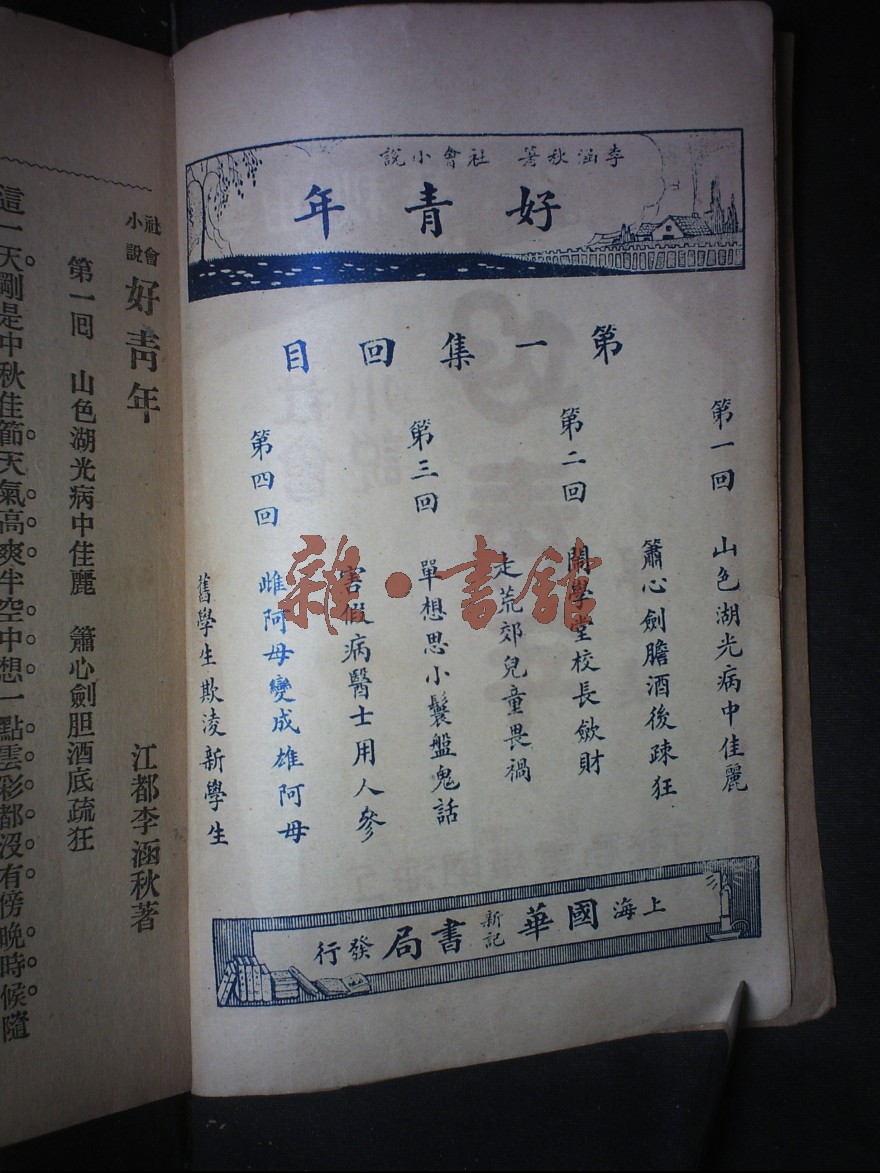 李涵秋著 社會小說
好青年
第一集回目
第一回 山色湖光病中佳麗
簫心劍膽酒後疎狂
第二回 鬧學堂校長斂財
走荒郊兒童畏禍
第三回 單想思小鬟盤鬼話
害假病醫士用人參
第四回 雌阿母變成雄阿母
舊學生欺淩新學生
上海國華新記書局發行
雜·書館
社會小說 好青年 江都李涵秋著
第一囘 山色湖光病中佳麗 簫心劍胆酒底疏狂
這一天剛是中秋佳節。天氣高爽。半空中想一點雲彩都沒有。傍晚時候。隨